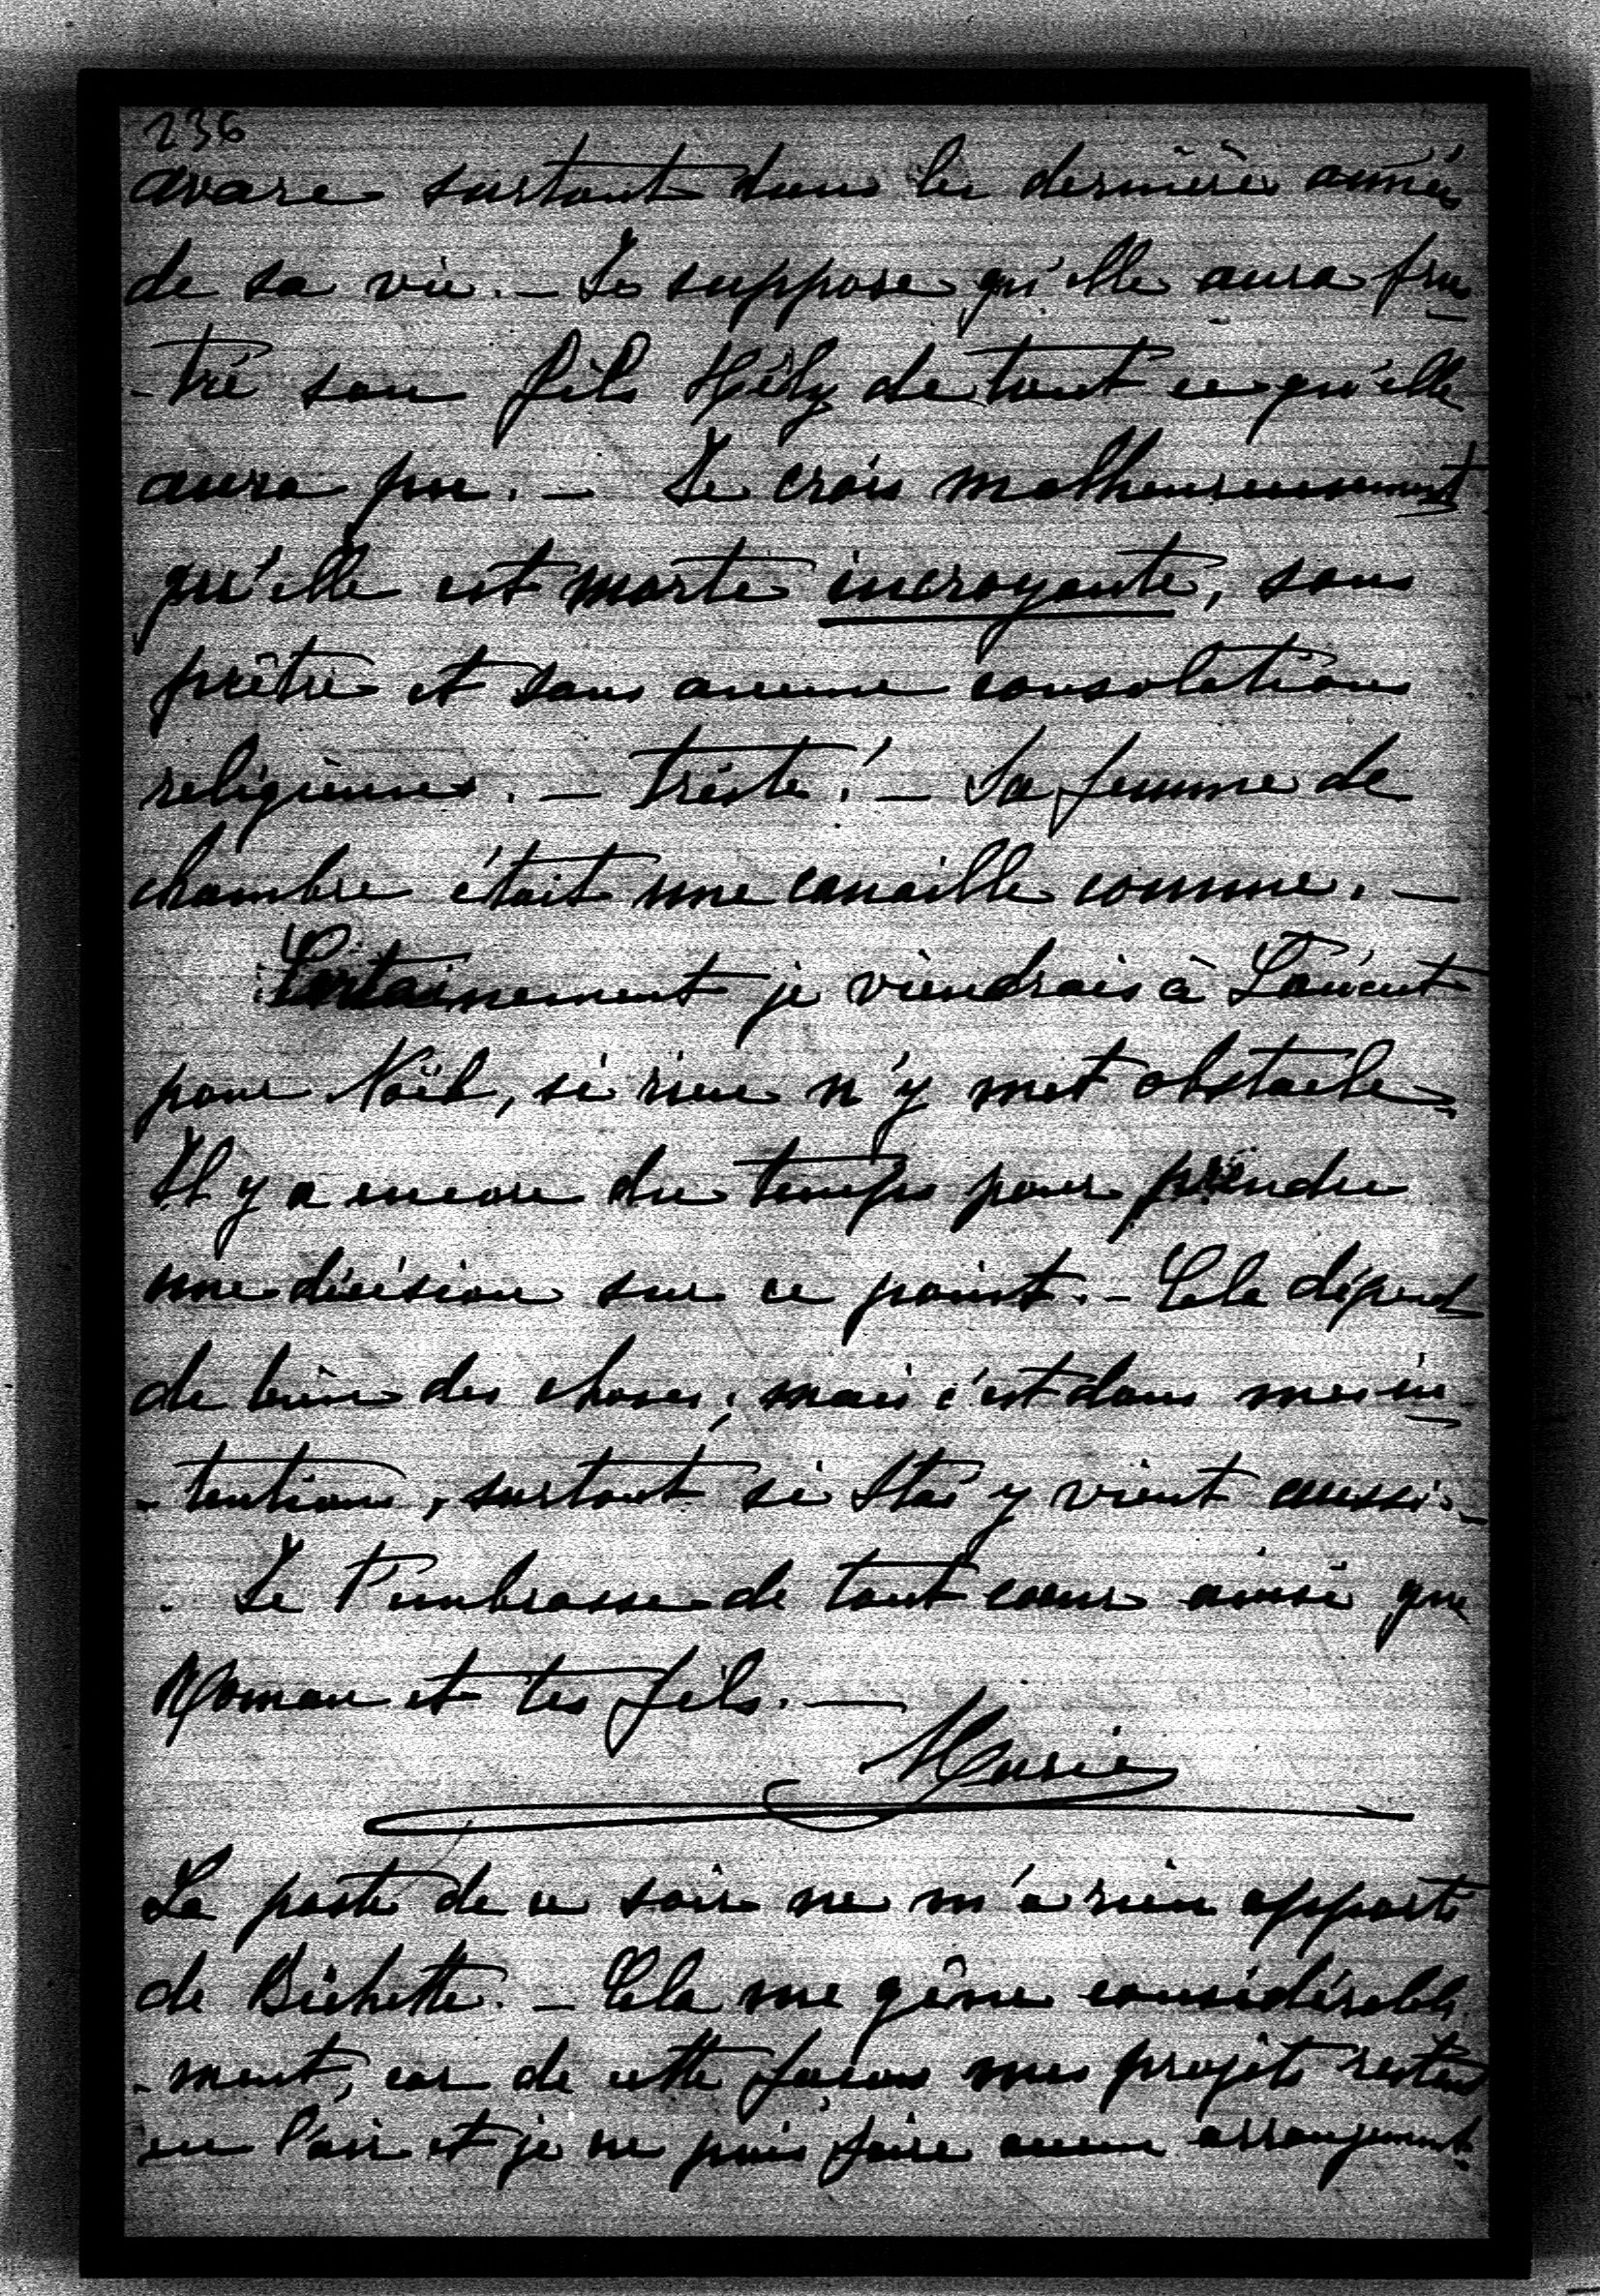 236
avare surtout dans les dernières années
de sa vie. — Je suppose qu'elle aura frus
-tré son fils Hély de tout ce qu'elle
aura pu. — Je crois malheureusement
qu'elle est morte incroyante, sans
prêtre et sans aucune consolations
religieuses. — triste! — Sa femme de
chambre était une canaille connue. —
Certainement je viendrais à Łańcut
pour Noël, si rien n'y met obstacle.
Il y a encore du temps pour prendre
une décision sur ce point. — Cela dépend
de bien des choses; mais c'est dans mes in
-tentions, surtout si Staś y vient aussi. —
Je t'embrasse de tout cœur ainsi que
Roman et tes fils. —
Marie
La poste de ce soir ne m'a rien apporté
de Bichette. — Cela me gêne considérable
-ment, car de cette façon mes projets restent
en l'air et je ne puis faire aucun arrangement.